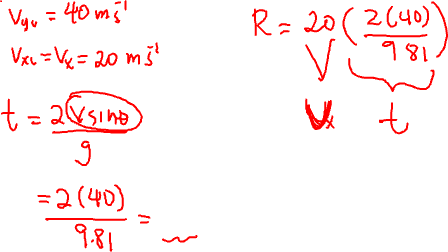 Vyu = 40 ms⁻¹
Vxi = Vx = 20 ms⁻¹
t = 2Vsinθ / g
= 2(40) / 9.81 =
R = 20 ( 2(40) / 9.81 )
Vx t